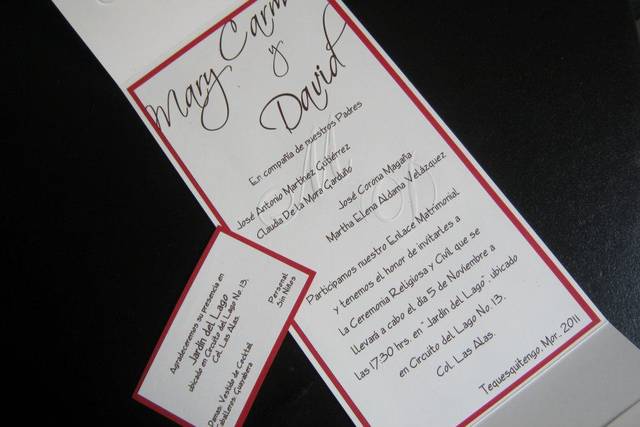 Mary Carm
y
David
En compañía de nuestros Padres
José Antonio Martínez Gutiérrez
Claudia De la Mora Garduño
José Corona Magaña
Martha Elena Aldama Velázquez
M D
Participamos nuestro Enlace Matrimonial
y tenemos el honor de invitarles a
la Ceremonia Religiosa y Civil que se
llevará a cabo el día 5 de Noviembre a
las 17:30 hrs. en "Jardín del Lago", ubicado
en Circuito del Lago No. 13.
Col. Las Alas.
Tequesquitengo, Mor., 2011
Agradeceremos su presencia en
Jardín del Lago
ubicado en Circuito del Lago No. 13.
Col. Las Alas.
Personal
Sin Niños
Damas: Vestido de Cocktail
Caballeros: Guayabera